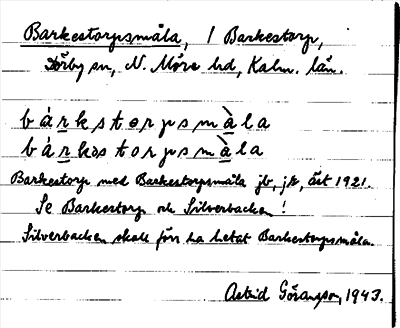 Barkestorpsmåla, 1 Barkestorp,
Dörby sn, N. Möre hd, Kalm. län.
bàrkstorpsmàla
bàrkəstorpsmàla
Barkestorp med Barkestorpsmåla jb, jr, äst 1921.
Se Barkestorp och Silverbacken!
Silverbacken skall förr ha hetat Barkestorpsmåla.
Astrid Göransson, 1943.